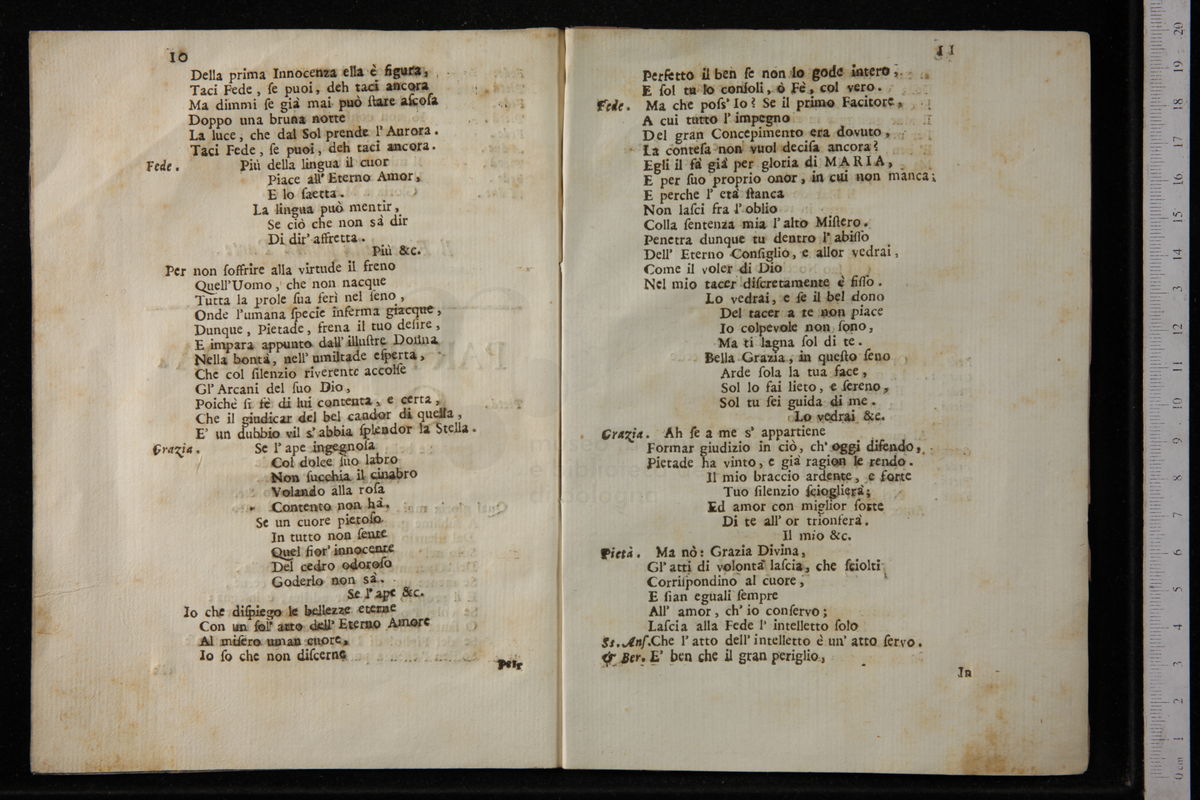 10
Della prima Innocenza ella è figura,
Taci Fede, ſe puoi, deh taci ancora
Ma dimmi ſe già mai può ſtare aſcoſa
Doppo una bruna notte
La luce, che dal Sol prende l'Aurora.
Taci Fede, ſe puoi, deh taci ancora.
Fede. Più della lingua il cuor
Piace all' Eterno Amor,
E lo ſaetta.
La lingua può mentir,
Se ciò che non sà dir
Di dir' affretta.
Più &c.
Per non ſoffrire alla virtude il freno
Quell'Uomo, che non nacque
Tutta la prole ſua ferì nel ſeno,
Onde l'umana ſpecie inferma giacque,
Dunque, Pietade, frena il tuo deſire,
E impara appunto dall' illuſtre Donna
Nella bontà, nell' umiltade eſperta,
Che col ſilenzio riverente accolſe
Gl' Arcani del ſuo Dio,
Poichè ſi fè di lui contenta, e certa,
Che il giudicar del bel candor di quella,
E' un dubbio vil s'abbia ſplendor la Stella.
Grazia. Se l'ape ingegnoſa
Col dolce ſuo labro
Non ſucchia il cinabro
Volando alla roſa
Contento non hà.
Se un cuore pietoſo
In tutto non ſente
Quel fior' innocente
Del cedro odoroſo
Goderlo non sà.
Se l'ape &c.
Io che diſpiego le bellezze eterne
Con un ſol' atto dell' Eterno Amore
Al miſero uman cuore,
Io ſo che non diſcerne
Per
11
Perfetto il ben ſe non lo gode intero,
E ſol tu lo conſoli, ò Fè, col vero.
Fede. Ma che poſs' Io? Se il primo Facitore,
A cui tutto l' impegno
Del gran Concepimento era dovuto,
La conteſa non vuol deciſa ancora?
Egli il fà già per gloria di MARIA,
E per ſuo proprio onor, in cui non manca;
E perche l' età ſtanca
Non laſci fra l'oblio
Colla ſentenza mia l'alto Miſtero.
Penetra dunque tu dentro l'abiſſo
Dell' Eterno Conſiglio, e allor vedrai,
Come il voler di Dio
Nel mio tacer diſcretamente è fiſſo.
Lo vedrai, e ſe il bel dono
Del tacer a te non piace
Io colpevole non ſono,
Ma ti lagna ſol di te.
Bella Grazia, in queſto ſeno
Arde ſola la tua face,
Sol lo fai lieto, e ſereno,
Sol tu ſei guida di me.
Lo vedrai &c.
Grazia. Ah ſe a me s' appartiene
Formar giudizio in ciò, ch' oggi difendo,
Pietade ha vinto, e già ragion le rendo.
Il mio braccio ardente, e forte
Tuo ſilenzio ſcioglierà;
Ed amor con miglior ſorte
Di te all' or trionferà.
Il mio &c.
Pietà. Ma nò: Grazia Divina,
Gl' atti di volontà laſcia, che ſciolti
Corriſpondino al cuore,
E ſian eguali ſempre
All' amor, ch' io conſervo;
Laſcia alla Fede l' intelletto ſolo
St. Anſ. Che l' atto dell' intelletto è un' atto ſervo.
& Ber. E' ben che il gran periglio,
In